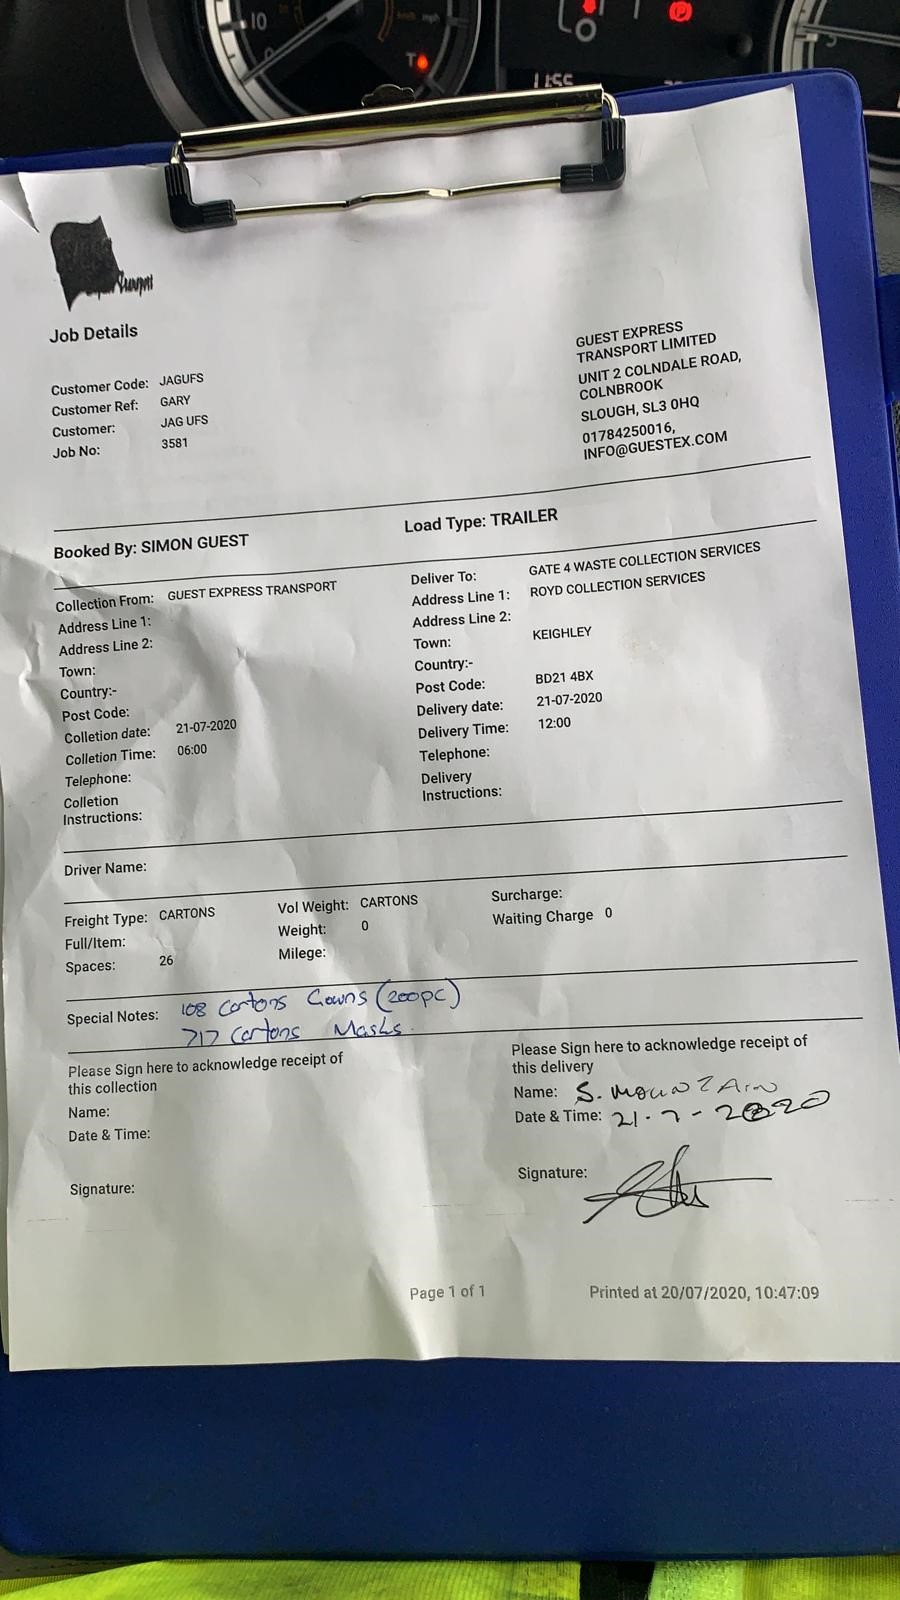 10
km/h mph
T
1155
Job Details
GUEST EXPRESS
TRANSPORT LIMITED
UNIT 2 COLNDALE ROAD,
COLNBROOK
SLOUGH, SL3 0HQ
01784250016,
INFO@GUESTEX.COM
Customer Code: JAGUFS
Customer Ref: GARY
Customer: JAG UFS
Job No: 3581
Booked By: SIMON GUEST
Load Type: TRAILER
Collection From: GUEST EXPRESS TRANSPORT
Address Line 1:
Address Line 2:
Town:
Country:-
Post Code:
Colletion date: 21-07-2020
Colletion Time: 06:00
Telephone:
Colletion
Instructions:
Deliver To: GATE 4 WASTE COLLECTION SERVICES
Address Line 1: ROYD COLLECTION SERVICES
Address Line 2:
Town: KEIGHLEY
Country:-
Post Code: BD21 4BX
Delivery date: 21-07-2020
Delivery Time: 12:00
Telephone:
Delivery
Instructions:
Driver Name:
Freight Type: CARTONS
Full/Item:
Spaces: 26
Vol Weight: CARTONS
Weight: 0
Milege:
Surcharge:
Waiting Charge 0
Special Notes: 108 Cartons Gowns (200pc)
717 Cartons Masks.
Please Sign here to acknowledge receipt of
this collection
Name:
Date & Time:
Signature:
Please Sign here to acknowledge receipt of
this delivery
Name: S. MOUNTAIN
Date & Time: 21-7-2020
Signature:
Page 1 of 1
Printed at 20/07/2020, 10:47:09